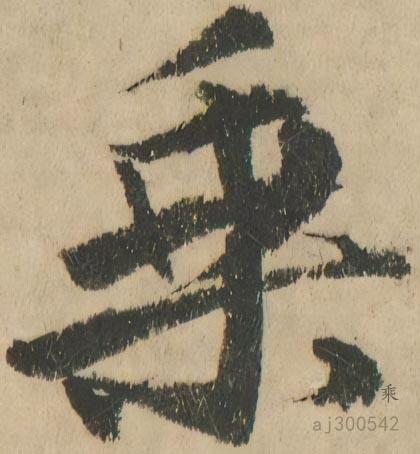 乘
乘
aj300542